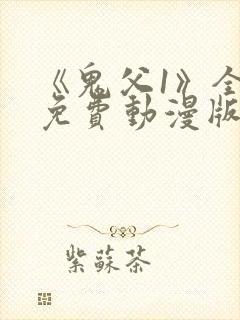 《鬼父1》全
免費動漫版
紫蘇茶